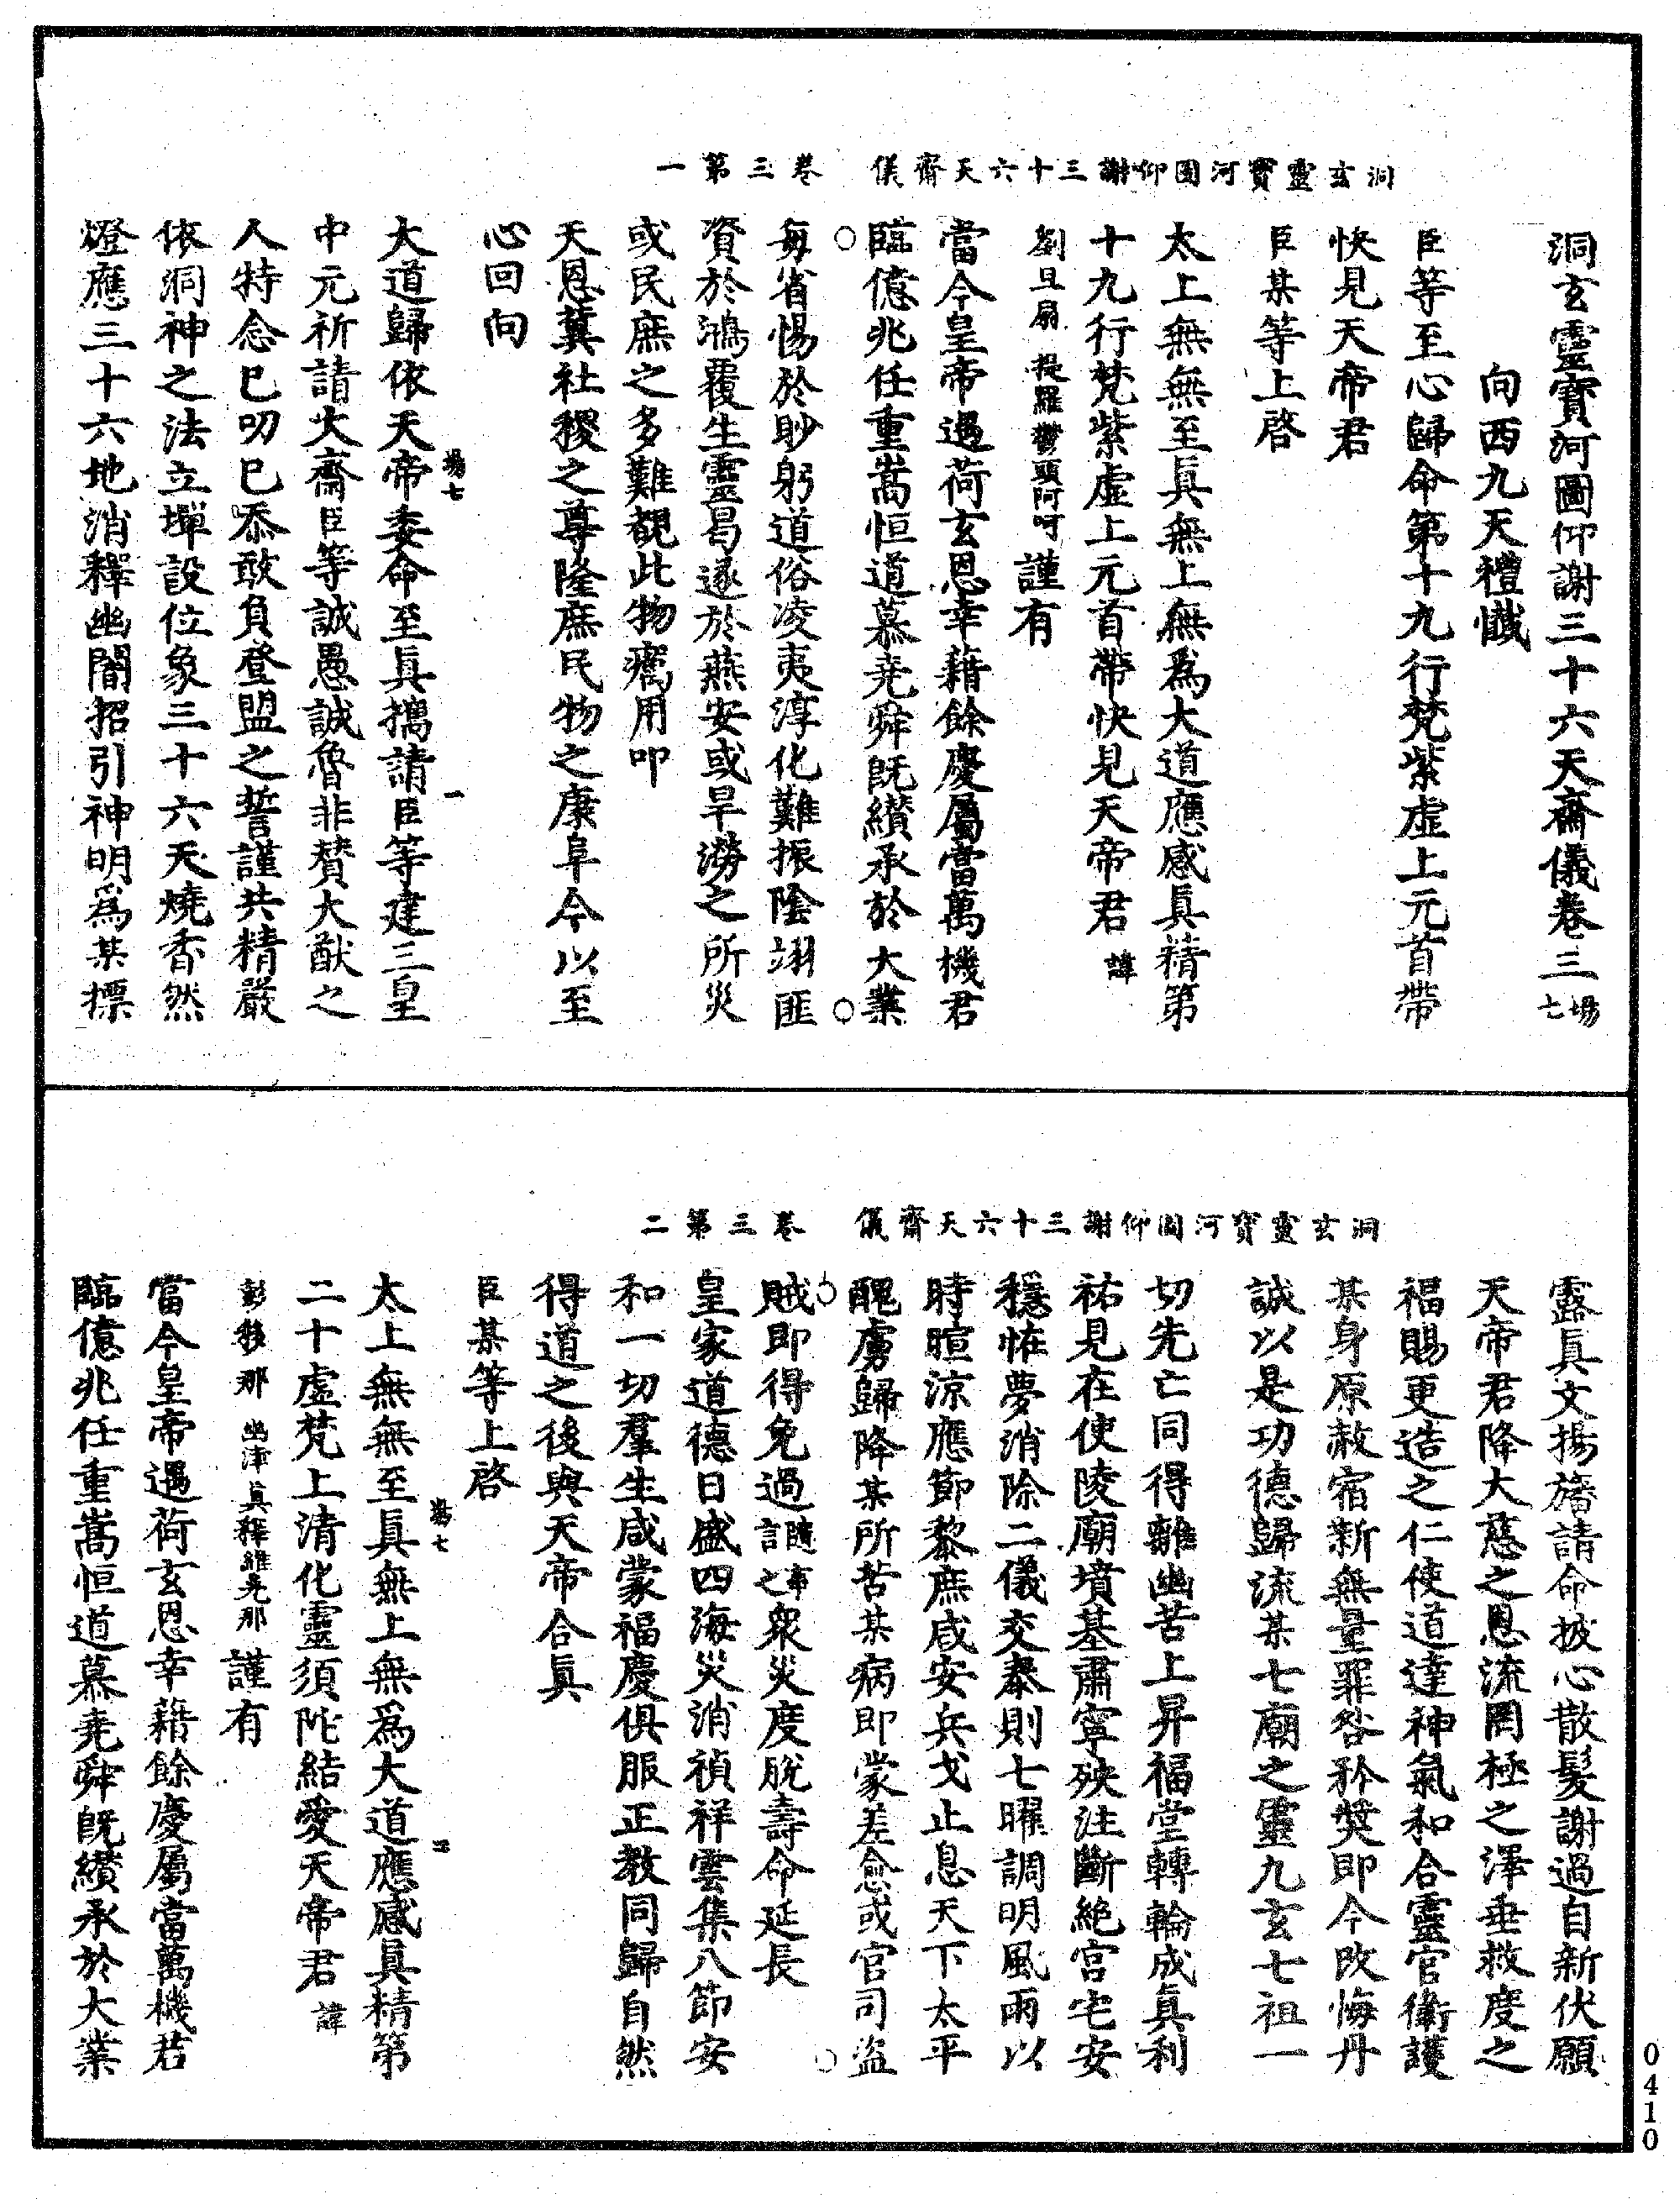 洞玄靈寶河圖仰謝三十六天齋儀　卷三第一
洞玄靈寶河圖仰謝三十六天齋儀卷三 場七
向西九天禮懺
臣等至心歸命第十九行梵紫虛上元首帶
快見天帝君
臣某等上啓
太上無無至眞無上無爲大道應感眞精第
十九行梵紫虛上元首帶快見天帝君諱
劉旦扇 提羅鬱頭阿呵謹有
當今皇帝遇荷玄恩幸藉餘慶屬當萬機君
臨億兆任重嵩恒道慕堯舜旣纘承於大業
每省惕於眇躬道俗凌夷淳化難振陰翊匪
資於鴻覆生靈曷遂於燕安或旱澇之所災
或民庶之多難覩此物癘用叩
天恩冀社稷之尊隆庶民物之康阜今以至
心回向
大道歸依天帝委命至眞攜請臣等建三皇
場七 一
中元祈請大齋臣等誠愚誠魯非贊大猷之
人特念已叨已忝敢負登盟之誓謹共精嚴
依洞神之法立墠設位象三十六天燒香然
燈應三十六地消釋幽闇招引神明爲某摽
洞玄靈寶河圖仰謝三十六天齋儀　卷三第二
露眞文揚旛請命披心散髮謝過自新伏願
天帝君降大慈之恩流罔極之澤垂救度之
福賜更造之仁使道達神氣和合靈官衛護
某身原赦宿新無量罪咎矜獎即今改悔丹
誠以是功德歸流某七廟之靈九玄七祖一
切先亡同得離幽苦上昇福堂轉輪成眞利
祐見在使陵廟墳基肅寧殃注斷絶宮宅安
穩恠夢消除二儀交泰則七曜調明風雨以
時暄涼應節黎庶咸安兵戈止息天下太平
醜虜歸降某所苦某病即蒙差愈或官司盜
賊即得免過隨事言之衆災度脫壽命延長
皇家道德日盛四海災消禎祥雲集八節安
和一切羣生咸蒙福慶俱服正教同歸自然
得道之後與天帝合眞
臣某等上啓
太上無無至眞無上無爲大道應感眞精第
場七 二
二十虛梵上清化靈須陁結愛天帝君諱
彭移那 幽津眞釋維堯那謹有
當今皇帝遇荷玄恩幸藉餘慶屬當萬機君
臨億兆任重嵩恒道慕堯舜旣纘承於大業
0410